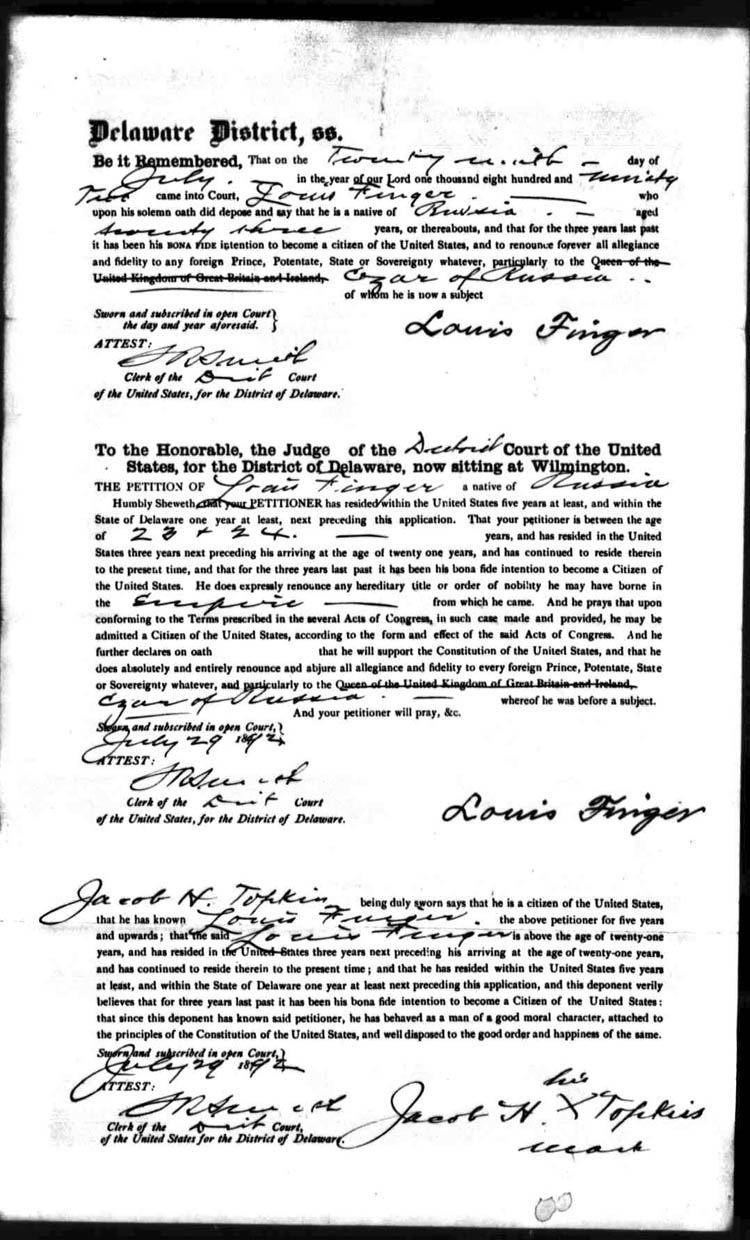 Delaware District, ss.
Be it Remembered, That on the Twenty ninth day of
July. in the year of our Lord one thousand eight hundred and ninety
Two came into Court, Louis Finger. who
upon his solemn oath did depose and say that he is a native of Russia. aged
twenty three years, or thereabouts, and that for the three years last past
it has been his BONA FIDE intention to become a citizen of the United States, and to renounce forever all allegiance
and fidelity to any foreign Prince, Potentate, State or Sovereignty whatever, particularly to the Queen of the
United Kingdom of Great Britain and Ireland, Czar of Russia..
of whom he is now a subject
Sworn and subscribed in open Court}
the day and year aforesaid.
Louis Finger
ATTEST:
Clerk of the Dist Court
of the United States, for the District of Delaware.
To the Honorable, the Judge of the District Court of the United
States, for the District of Delaware, now sitting at Wilmington.
THE PETITION OF Louis Finger a native of Russia
Humbly Sheweth, that your PETITIONER has resided within the United States five years at least, and within the
State of Delaware one year at least, next preceding this application. That your petitioner is between the age
of 23 + 24. years, and has resided in the United
States three years next preceding his arriving at the age of twenty one years, and has continued to reside therein
to the present time, and that for the three years last past it has been his bona fide intention to become a Citizen of
the United States. He does expressly renounce any hereditary title or order of nobility he may have borne in
the Empire from which he came. And he prays that upon
conforming to the Terms prescribed in the several Acts of Congress, in such case made and provided, he may be
admitted a Citizen of the United States, according to the form and effect of the said Acts of Congress. And he
further declares on oath that he will support the Constitution of the United States, and that he
does absolutely and entirely renounce and abjure all allegiance and fidelity to every foreign Prince, Potentate, State
or Sovereignty whatever, and particularly to the Queen of the United Kingdom of Great Britain and Ireland,
Czar of Russia. whereof he was before a subject.
And your petitioner will pray, &c.
Sworn and subscribed in open Court,}
July 29 1892
ATTEST:
Clerk of the Dist Court
of the United States, for the District of Delaware.
Louis Finger
Jacob H. Topkis being duly sworn says that he is a citizen of the United States,
that he has known Louis Finger. the above petitioner for five years
and upwards; that the said Louis Finger is above the age of twenty-one
years, and has resided in the United States three years next preceding his arriving at the age of twenty-one years,
and has continued to reside therein to the present time; and that he has resided within the United States five years
at least, and within the State of Delaware one year at least next preceding this application, and this deponent verily
believes that for three years last past it has been his bona fide intention to become a Citizen of the United States:
that since this deponent has known said petitioner, he has behaved as a man of a good moral character, attached to
the principles of the Constitution of the United States, and well disposed to the good order and happiness of the same.
Sworn and subscribed in open Court,}
July 29 1892
ATTEST:
his
Jacob H. X Topkis
mark
Clerk of the Dist Court,
of the United States for the District of Delaware.